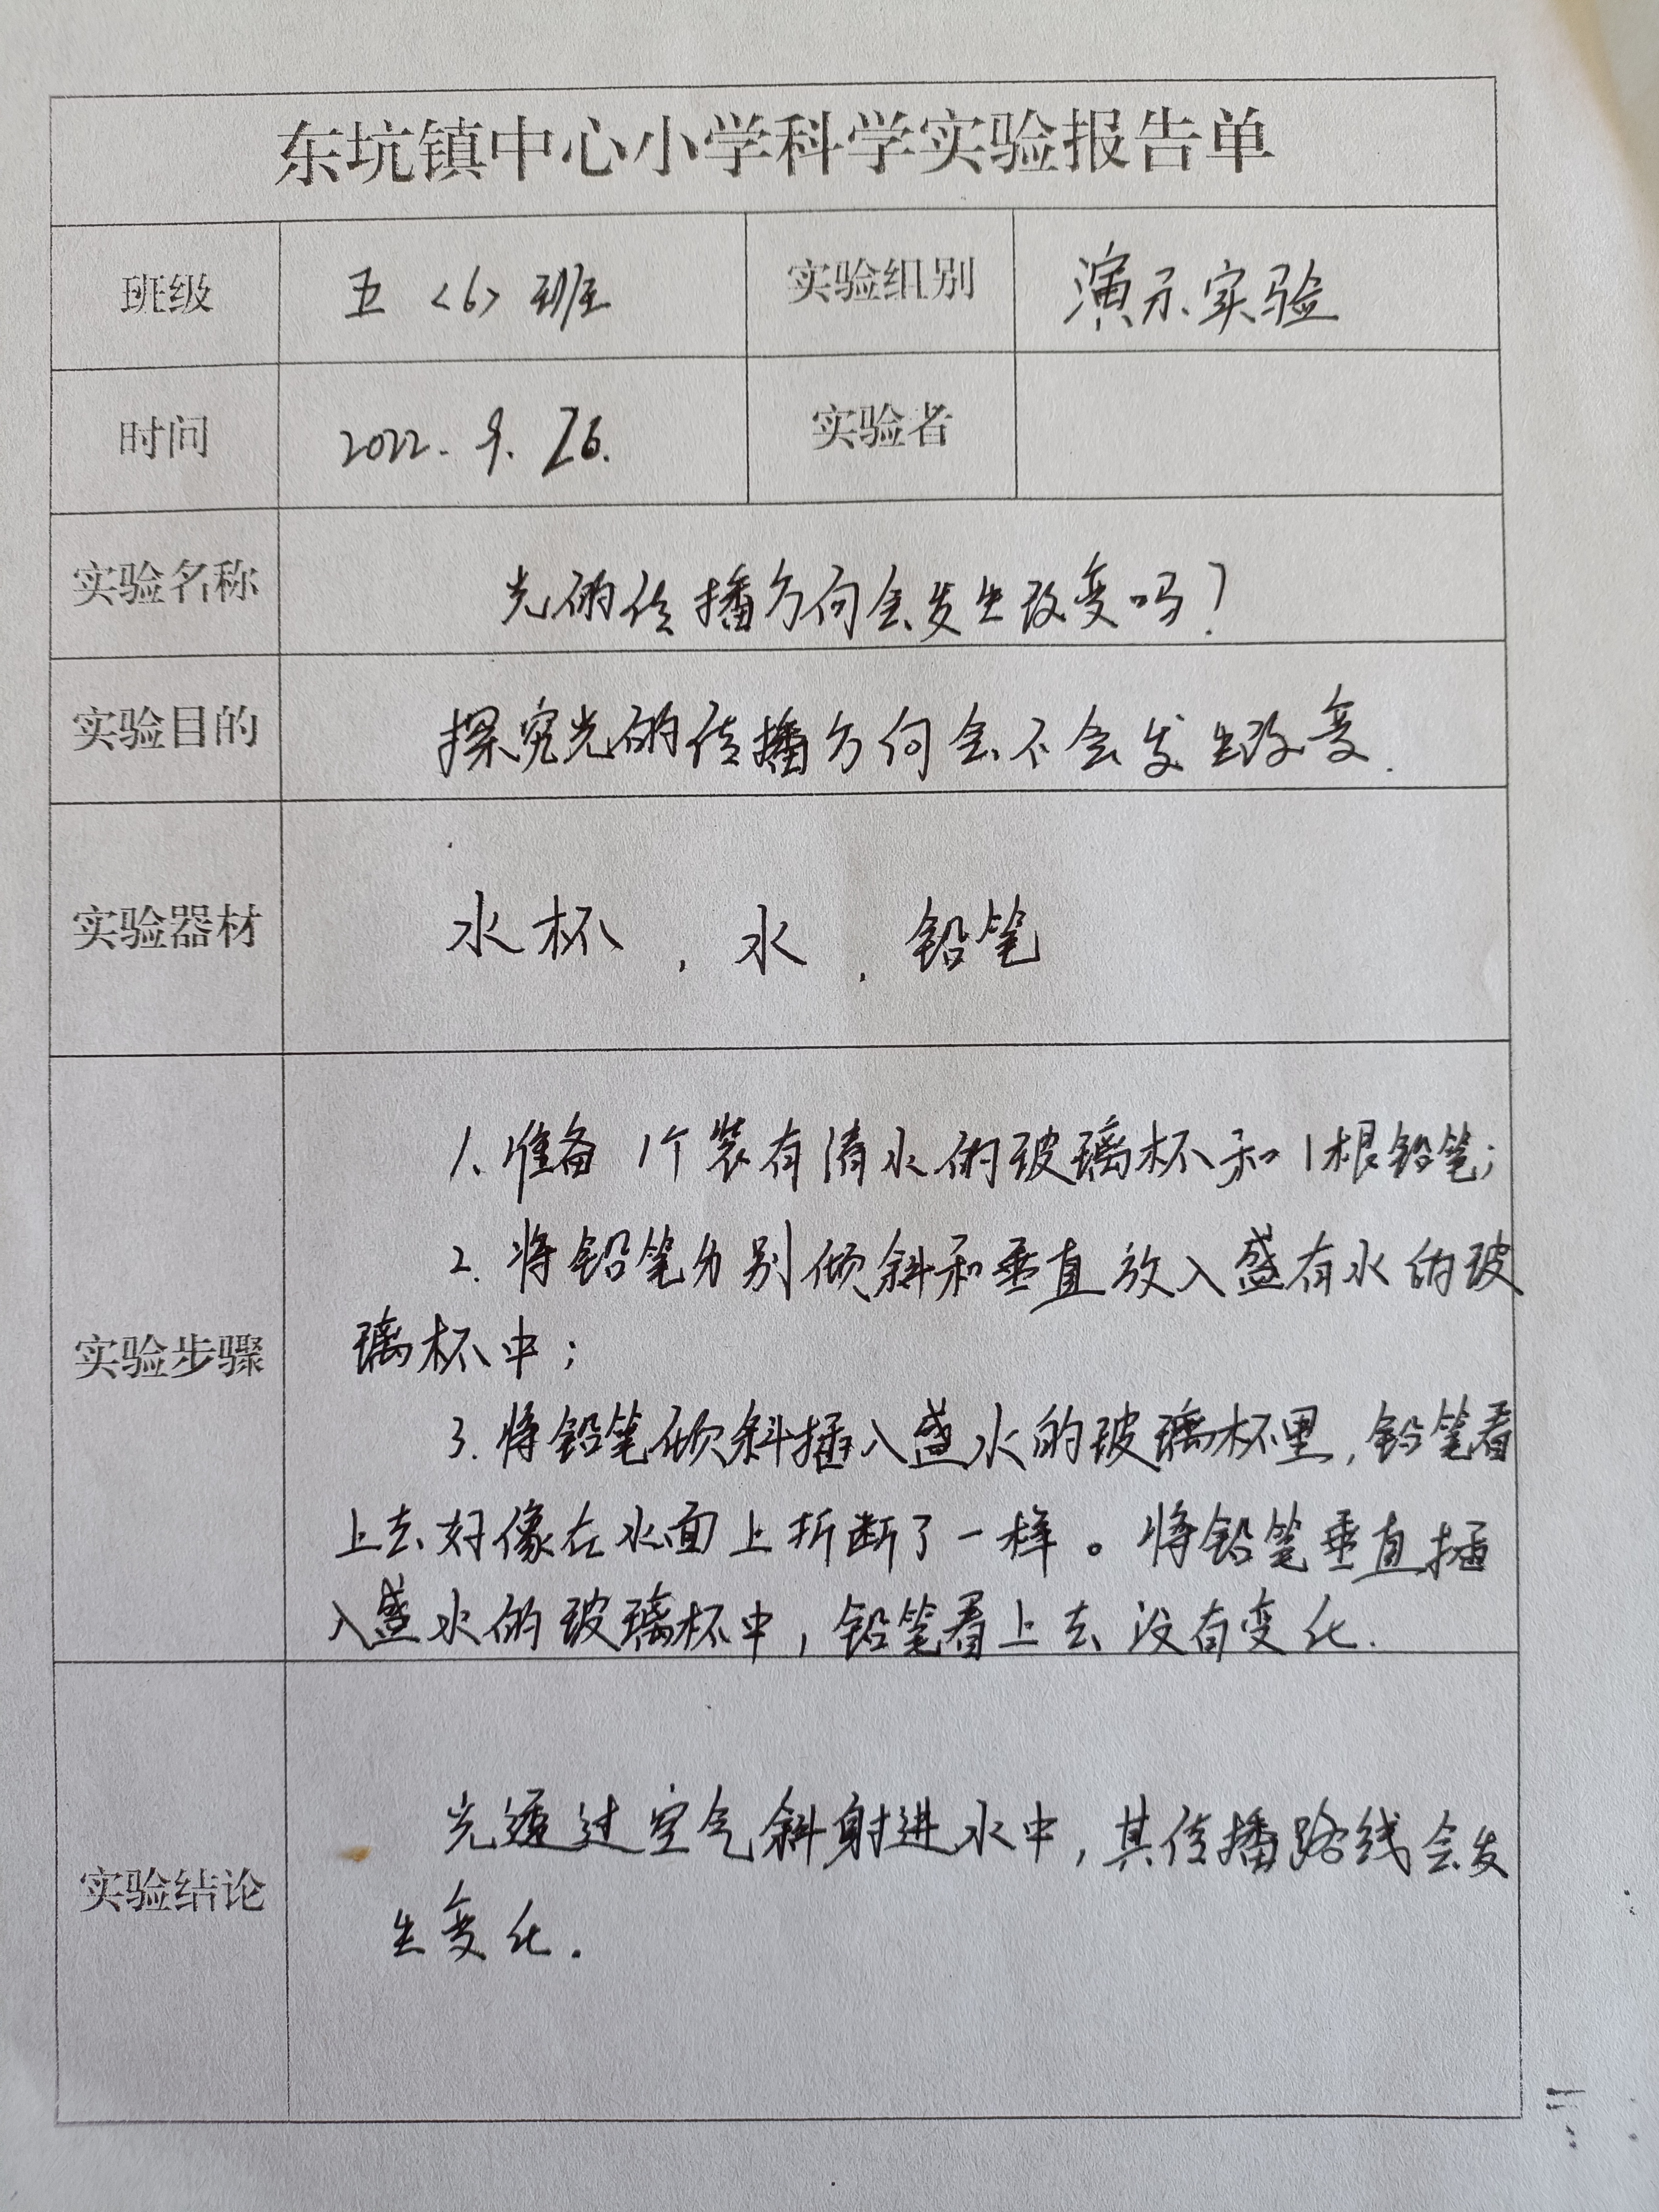 东坑镇中心小学科学实验报告单
班级 五<6>班 实验组别 演示实验
时间 2022.9.26. 实验者
实验名称 光的传播方向会发生改变吗?
实验目的 探究光的传播方向会不会发生改变.
实验器材 水杯,水,铅笔
1.准备1个装有清水的玻璃杯和1根铅笔;
2.将铅笔分别倾斜和垂直放入盛有水的玻
璃杯中;
实验步骤
3.将铅笔倾斜插入盛水的玻璃杯里,铅笔看
上去好像在水面上折断了一样。将铅笔垂直插
入盛水的玻璃杯中,铅笔看上去没有变化.
光透过空气斜射进水中,其传播路线会发
实验结论
生变化.